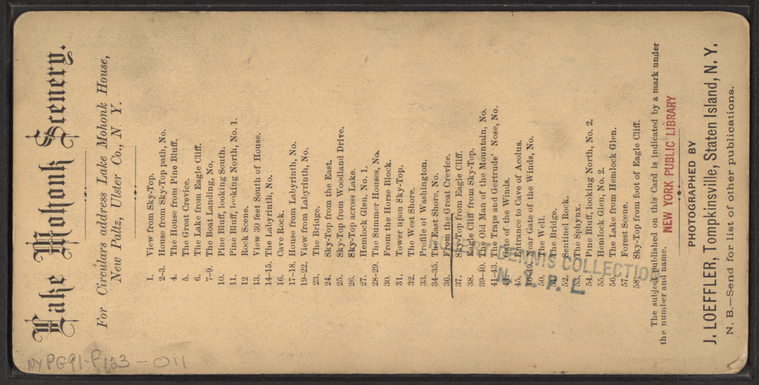 Lake Mohonk Scenery.
For Circulars address Lake Mohonk House,
New Paltz, Ulster Co., N. Y.
1. View from Sky-Top.
2-3. House from Sky-Top path, No.
4. The House from Pine Bluff.
5. The Great Crevice.
6. The Lake from Eagle Cliff.
7-9. The Boat Landing, No.
10. Pine Bluff, looking South.
11. Pine Bluff, looking North, No. 1.
12 Rock Scene.
13. View 30 feet South of House.
14-15. The Labyrinth, No.
16. Cave Rock.
17-18. House from Labyrinth, No.
19-22. View from Labyrinth, No.
23. The Bridge.
24. Sky-Top from the East.
25. Sky-Top from Woodland Drive.
26. Sky-Top across Lake.
27. Hemlock Glen, No. 1.
28-29. The Summer Houses, No.
30. From the Horse Block.
31. Tower upon Sky-Top.
32. The West Shore.
33. Profile of Washington.
34-35. The East Shore, No.
36. From the Great Crevice.
37. Sky-Top from Eagle Cliff.
38. Eagle Cliff from Sky-Top.
39-40. The Old Man of the Mountain, No.
41-43. The Traps and Gertrude' Nose, No.
of the Winds.
45. Entrance to Cave of Aeolus.
Near Gate of the Winds, No.
50. The Well.
The Bridge.
52. Sentinel Rock.
53. The Sphynx.
54. Pine Bluff, looking North, No. 2.
55. Hemlock Glen, No. 2.
56. The Lake from Hemlock Glen.
57. Forest Scene.
58. Sky-Top from foot of Eagle Cliff.
The subject published on this Card is indicated by a mark under
the number and name.
NEW YORK PUBLIC LIBRARY
PHOTOGRAPHED BY
J. LOEFFLER, Tompkinsville, Staten Island, N. Y.
N. B.—Send for list of other publications.
DENNIS COLLECTION
N. Y. P. L.
NYPG91-F123-011